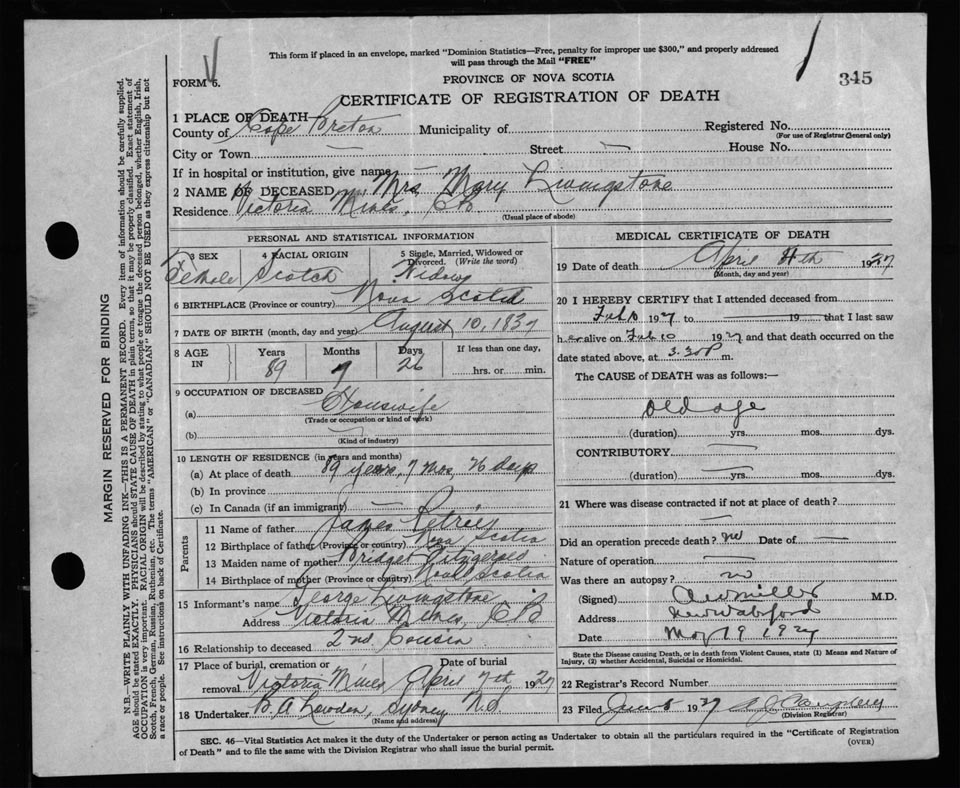 This form if placed in an envelope, marked "Dominion Statistics—Free, penalty for improper use $300," and properly addressed
will pass through the Mail "FREE"
FORM 6.
PROVINCE OF NOVA SCOTIA
345
CERTIFICATE OF REGISTRATION OF DEATH
1 PLACE OF DEATH
County of Cape Breton Municipality of Registered No.
(For use of Registrar General only)
City or Town — Street — House No.
If in hospital or institution, give name —
2 NAME OF DECEASED Mrs Mary Livingstone
Residence Victoria Mines, CB
(Usual place of abode)
PERSONAL AND STATISTICAL INFORMATION
3 SEX 4 RACIAL ORIGIN 5 Single, Married, Widowed or Divorced. (Write the word)
Female Scotch Widow
6 BIRTHPLACE (Province or country) Nova Scotia
7 DATE OF BIRTH (month, day and year) August 10, 1837
8 AGE IN Years Months Days If less than one day,
89 7 26 hrs. or min.
9 OCCUPATION OF DECEASED
(a) Housewife
(Trade or occupation or kind of work)
(b) —
(Kind of industry)
10 LENGTH OF RESIDENCE (in years and months)
(a) At place of death 89 years, 7 mos, 26 days
(b) In province
(c) In Canada (if an immigrant) —
Parents
11 Name of father James Petrie
12 Birthplace of father (Province or country) Nova Scotia
13 Maiden name of mother Bridget Fitzgerald
14 Birthplace of mother (Province or country) Nova Scotia
15 Informant's name George Livingstone
Address Victoria Mines, CB
16 Relationship to deceased 2nd Cousin
17 Place of burial, cremation or removal Victoria Mines Date of burial April 7th 1927
18 Undertaker Sydney N.S
(Name and address)
MEDICAL CERTIFICATE OF DEATH
19 Date of death April 4th 1927
(Month, day and year)
20 I HEREBY CERTIFY that I attended deceased from
Feb 10 1927 to — 19 — that I last saw
her alive on Feb 10 1927 and that death occurred on the
date stated above, at 3.30P m.
The CAUSE of DEATH was as follows:—
old age
(duration) — yrs. mos. dys.
CONTRIBUTORY —
(duration) — yrs. mos. dys.
21 Where was disease contracted if not at place of death?
—
Did an operation precede death? no Date of —
Nature of operation —
Was there an autopsy? no
(Signed) Miller M.D.
Address New Waterford
Date May 19 1927
State the Disease causing Death, or in death from Violent Causes, state (1) Means and Nature of
Injury, (2) whether Accidental, Suicidal or Homicidal.
22 Registrar's Record Number
23 Filed June 6 1927
(Division Registrar)
SEC. 46—Vital Statistics Act makes it the duty of the Undertaker or person acting as Undertaker to obtain all the particulars required in the "Certificate of Registration
of Death" and to file the same with the Division Registrar who shall issue the burial permit. (OVER)
MARGIN RESERVED FOR BINDING
N.B.—WRITE PLAINLY WITH UNFADING INK—THIS IS A PERMANENT RECORD. Every item of information should be carefully supplied.
AGE should be stated EXACTLY. PHYSICIANS should STATE CAUSE OF DEATH in plain terms, so that it may be properly classified. Exact statement of
OCCUPATION is very important. RACIAL ORIGIN will be described by stating to what people or race the deceased person belonged, whether English, Irish,
Scotch, French, German, Russian, Ruthenian, etc. The terms "AMERICAN" or "CANADIAN" SHOULD NOT BE USED as they express citizenship but not
a race or people. See instructions on back of Certificate.